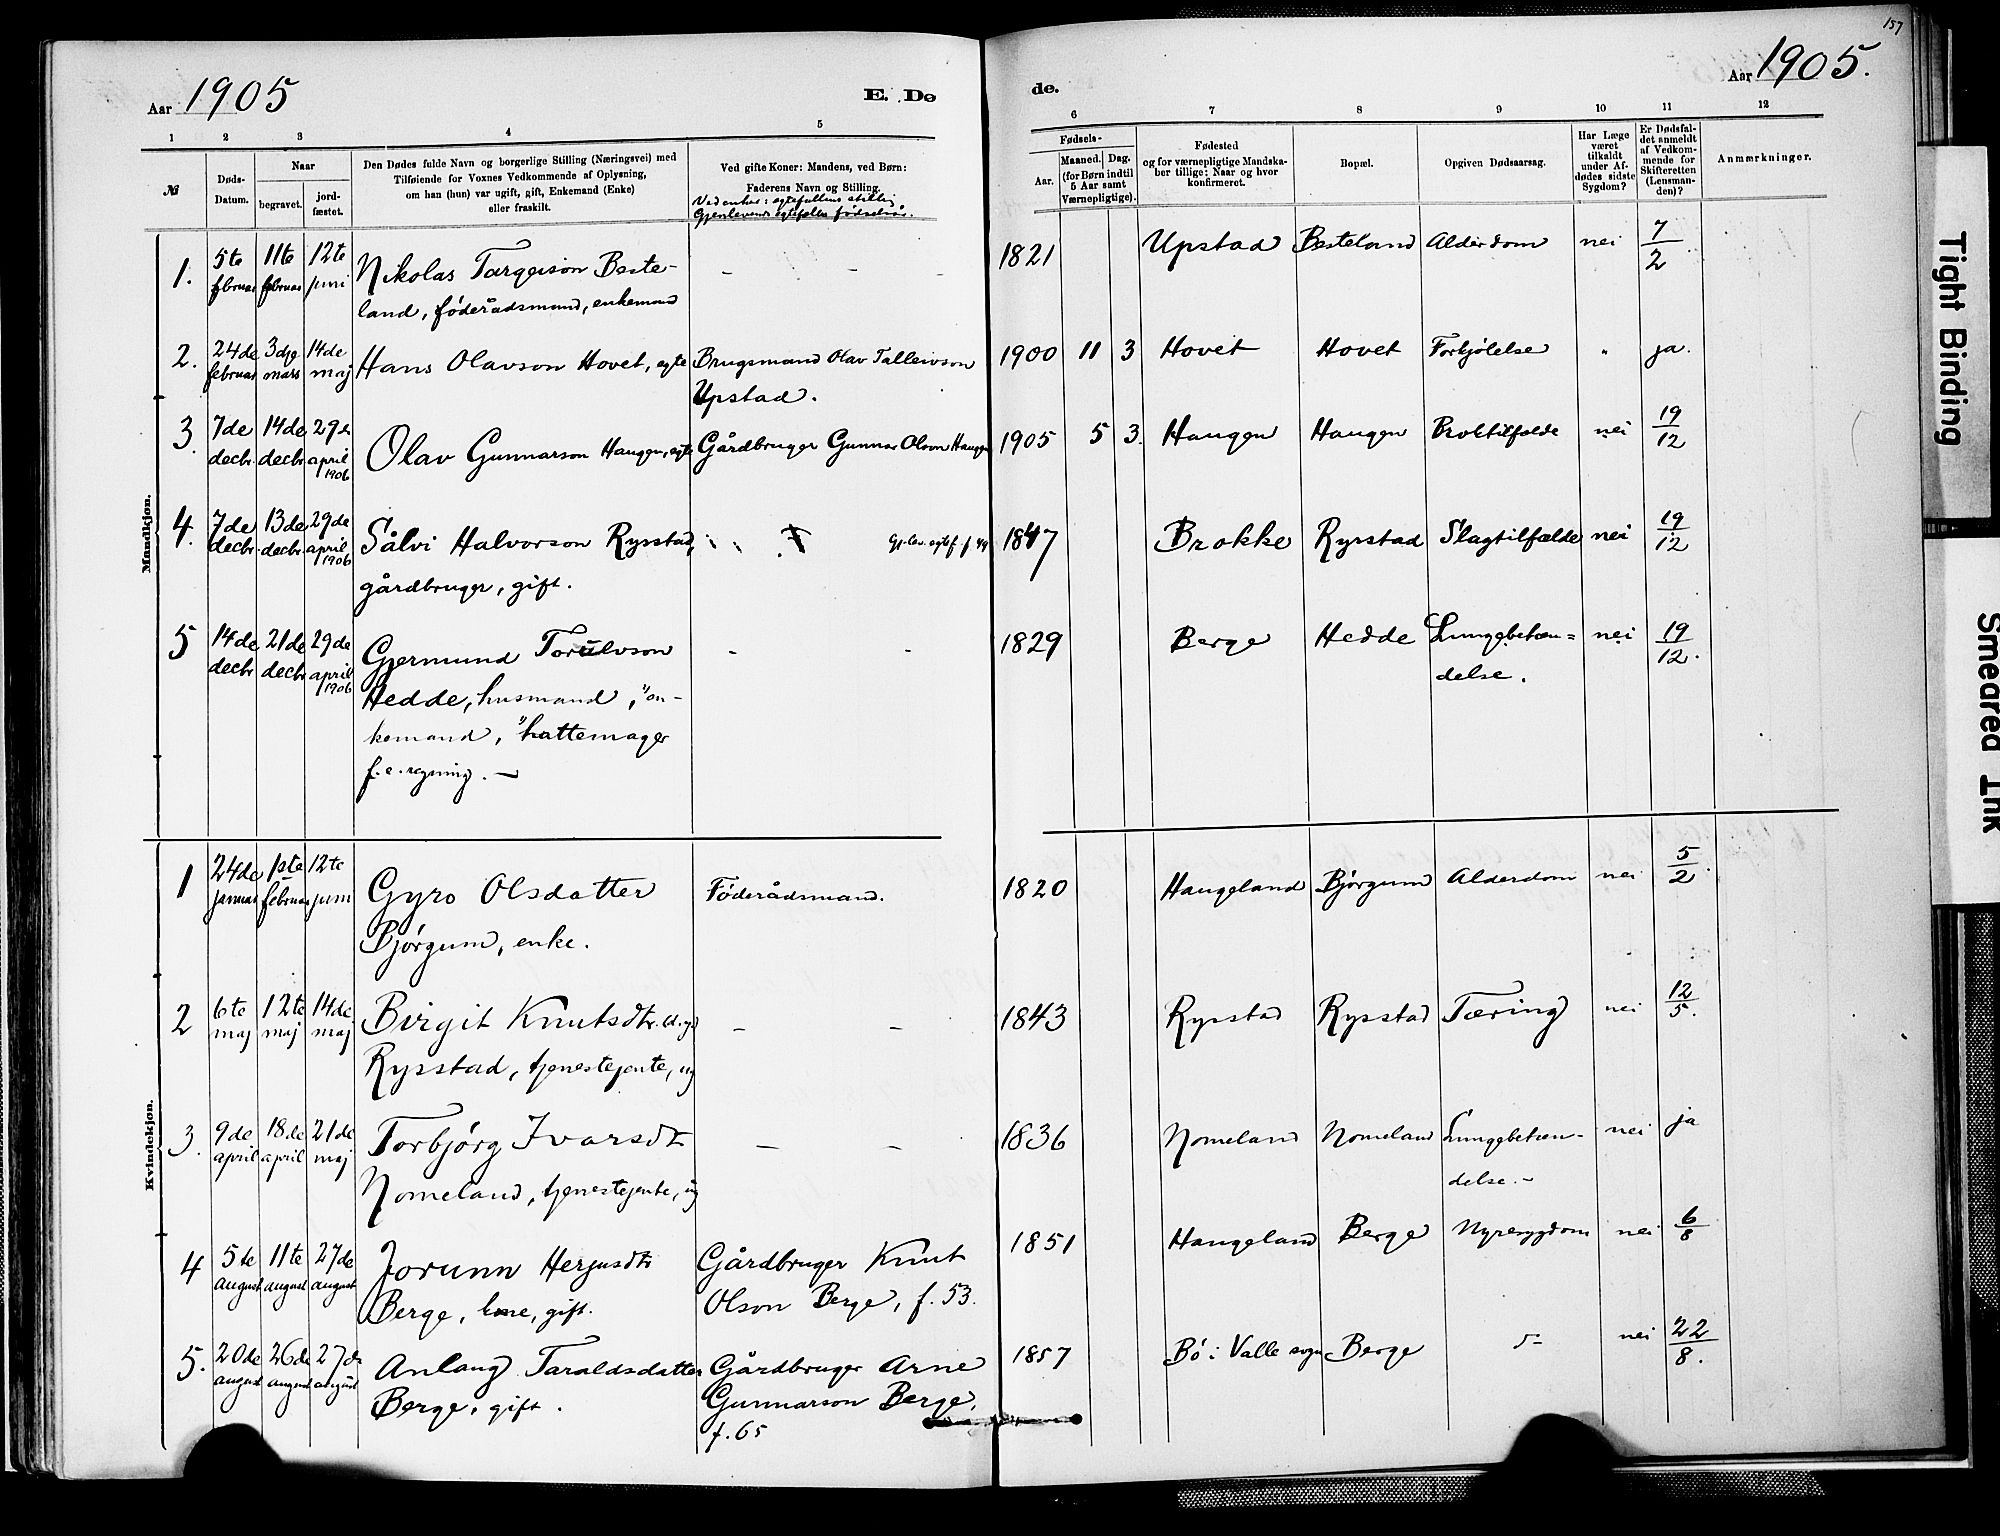 157
Aar 1905
E. De
de.
Aar 1905.
1 2 3 4 5 6 7 8 9 10 11 12
№
Døds-
Datum.
Naar
begravet.
jord-
fæstet.
Den Dødes fulde Navn og borgerlige Stilling (Næringsvei) med
Tilføiende for Voxnes Vedkommende af Oplysning,
om han (hun) var ugift, gift, Enkemand (Enke)
eller fraskilt.
Ved gifte Koner: Mandens, ved Børn:
Faderens Navn og Stilling.
Ved enker: egtefællens stilling
Gjenlevende egtefælles fødselsår.
Fødsels-
Aar.
Maaned. Dag.
(for Børn indtil
5 Aar samt
Værnepligtige).
Fødested
og for værnepligtige Mandska-
ber tillige: Naar og hvor
konfirmeret.
Bopæl.
Opgiven Dødsaarsag.
Har Læge
været
tilkaldt
under Af-
dødes sidste
Sygdom?
Er Dødsfal-
det anmeldt
af Vedkom-
mende for
Skifteretten
(Lensman-
den)?
Anmærkninger.
Mandkjøn.
1. 5te februar 11te februar 12te juni Nikolas Targeison Beste-
land, føderådsmand, enkemand - - - 1821 Upstad Besteland Alderdom nei 7/2
2. 24de februar 3dje mars 14de maj Hans Olavson Hovet, egte Brugsmand Olav Talleivson
Upstad. 1900 11 3 Hovet Hovet Forkjølelse " ja.
3. 7de decbr. 14de decbr 29de april 1906 Olav Gunnarson Haugen, egte Gårdbruger Gunnar Olson Haugen 1905 5 3. Haugen Haugen Broktilfælde nei 19/12
4. 7de decbr. 13de decbr. 29de april 1906 Sålvi Halvorson Rysstad,
gårdbruger, gift. Gj.lev. egtef. f. 49 1847 Brokke Rysstad Slagtilfælde nei 19/12
5 14de decbr 21de decbr 29de april 1906 Gjermund Torulvson
Hedde, husmand, "en-
kemand, "hattemager
f. e. regning. — - - 1829 Berge Hedde Lungebetæn=
delse. nei 19/12.
Kvindekjøn.
1 24de januar 1ste februar 12te juni Gyro Olsdatter
Bjørgum, enke. Føderådsmand. 1820 Haugeland Bjørgum Alderdom nei 5/2.
2 6te maj 12te maj 14de maj Birgit Knutsdtr. d. y.
Rysstad, tjenestejente, ug - - 1843 Rysstad Rysstad Tæring nei 12/5.
3. 9de april 18de april 21de maj Torbjørg Ivarsdt
Nomeland, tjenestejente, ug — - 1836 Nomeland Nomeland Lungebetæn-
delse. - nei ja
4 5te august 11te august 27de august Jorunn Herjusdtr
Berge, kone, gift. Gårdbruger Knut
Olson Berge, f. 53. 1851 Haugeland Berge Nyresygdom nei 6/8
5. 20de august 26de august 27de august Anlaug Taraldsdatter
Berge, gift. Gårdbruger Arne
Gunnarson Berge,
f. 65 1857 Bø i Valle sogn Berge nei 22/8.
Tight Binding
Smeared Ink